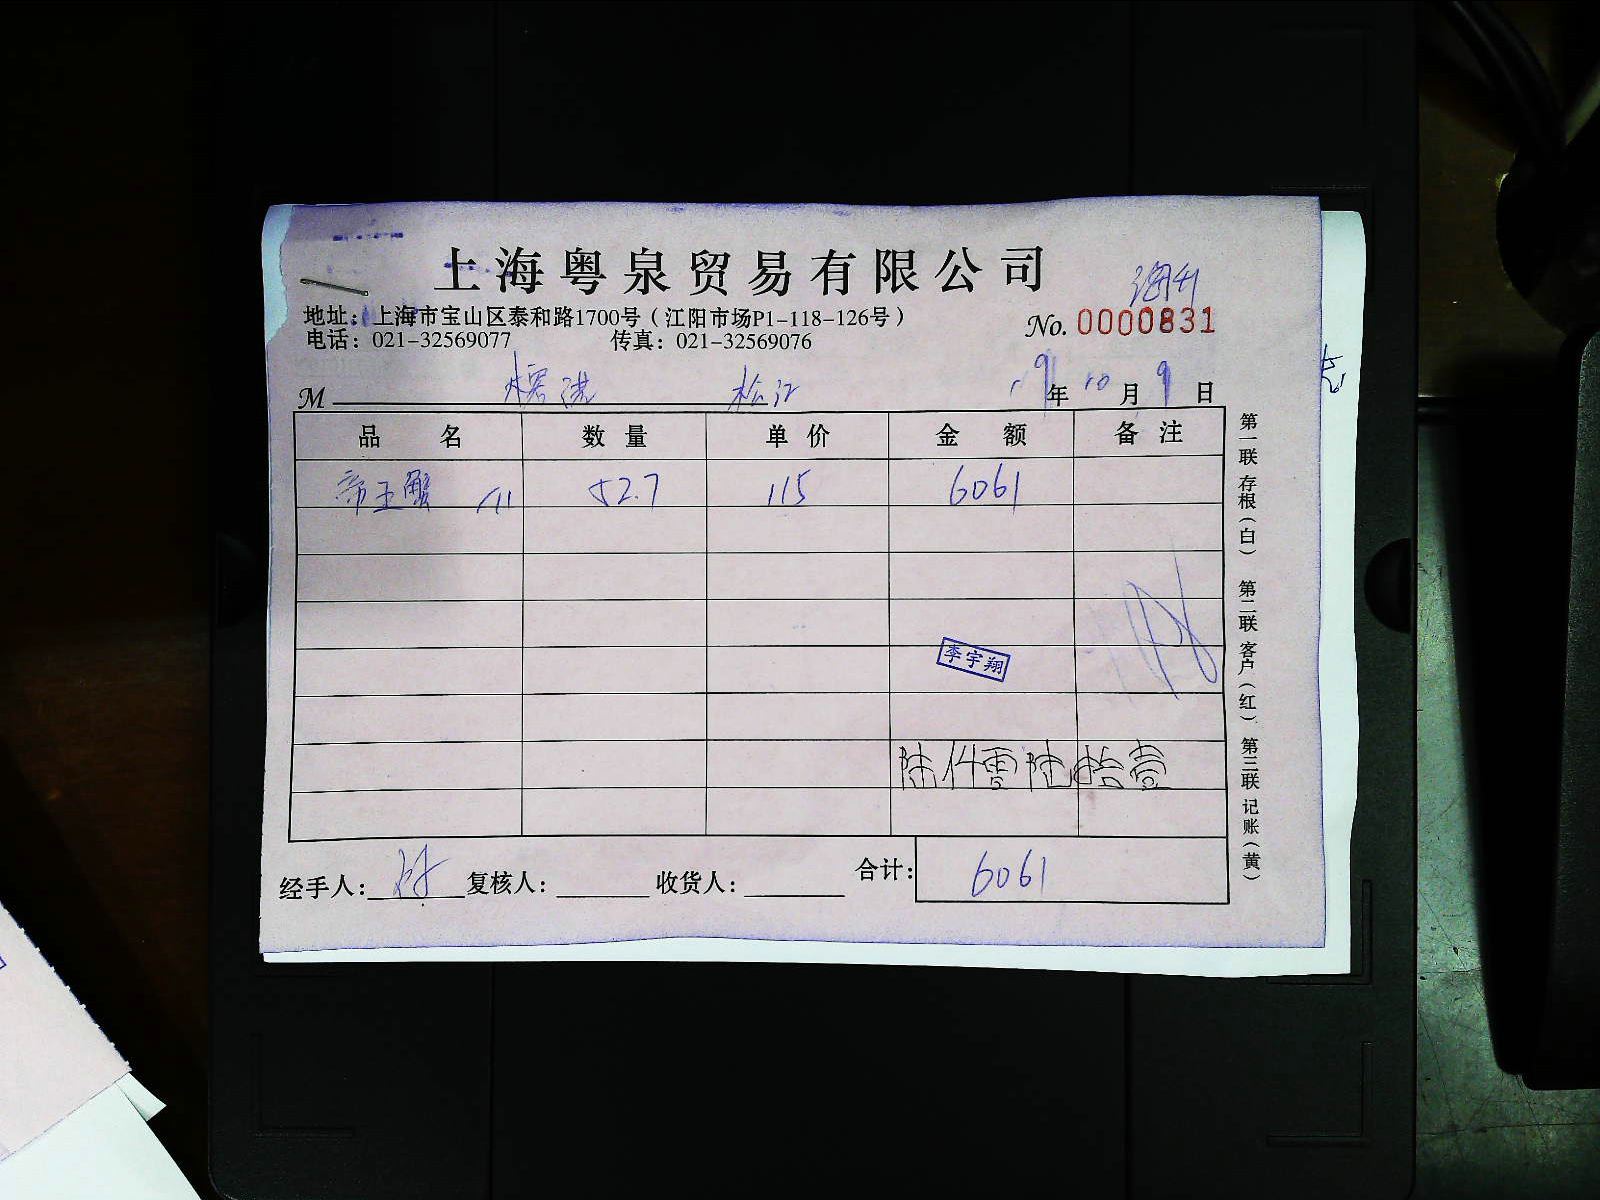 上海粤泉贸易有限公司
地址：上海市宝山区泰和路1700号（江阳市场P1-118-126号）
No. 0000831
电话：021-32569077 传真：021-32569076
M 松江 19年10月9日
品名 数量 单价 金额 备注
帝王蟹 52.7 115 6061
李宇翔
陆仟零陆拾壹
经手人： 复核人： 收货人： 合计：6061
第一联 存根（白） 第二联 客户（红） 第三联 记账（黄）